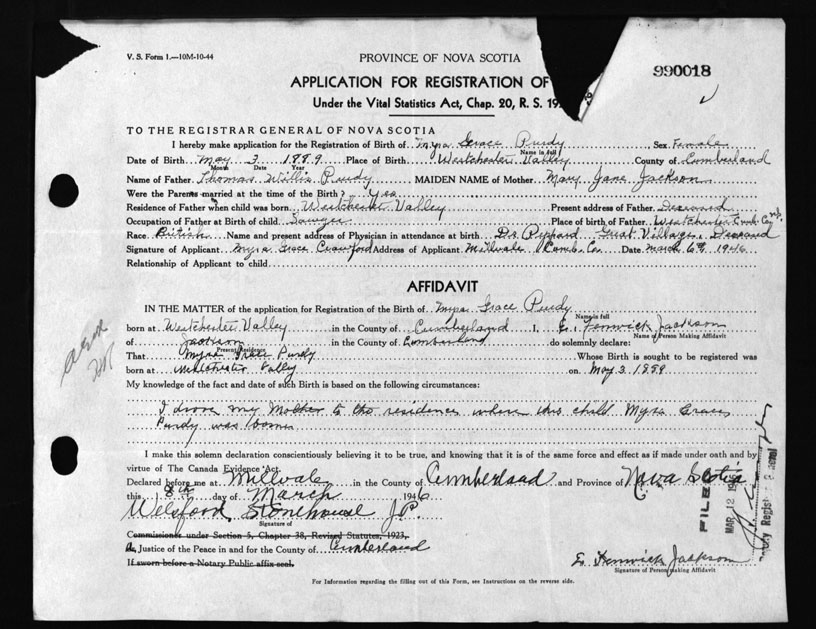 V. S. Form 1.—10M-10-44
PROVINCE OF NOVA SCOTIA
990018
APPLICATION FOR REGISTRATION OF
Under the Vital Statistics Act, Chap. 20, R. S. 19
TO THE REGISTRAR GENERAL OF NOVA SCOTIA
I hereby make application for the Registration of Birth of Myra Grace Purdy Sex Female
Name in full
Date of Birth May 3 1889 Place of Birth Westchester Valley County of Cumberland
Month Date Year
Name of Father Thomas Willis Purdy MAIDEN NAME of Mother Mary Jane Jackson
Were the Parents married at the time of the Birth? Yes
Residence of Father when child was born Westchester Valley Present address of Father Deceased
Occupation of Father at Birth of child Sawyer Place of birth of Father Westchester Cumb Co NS
Race British Name and present address of Physician in attendance at birth Dr Great Village Deceased
Signature of Applicant Myra Grace Crawford Address of Applicant Millvale Cumb. Co. Date March 6th 1946
Relationship of Applicant to child
AFFIDAVIT
IN THE MATTER of the application for Registration of the Birth of Myra Grace Purdy
Name in full
born at Westchester Valley in the County of Cumberland I, E. Fenwick Jackson
Name of Person Making Affidavit
of Jackson in the County of Cumberland do solemnly declare:
Present Residence
That Myra Grace Purdy Whose Birth is sought to be registered was
born at Westchester Valley on May 3 1889
My knowledge of the fact and date of such Birth is based on the following circumstances:
I drove my Mother to the residence where this child Myra Grace
Purdy was borne
I make this solemn declaration conscientiously believing it to be true, and knowing that it is of the same force and effect as if made under oath and by
virtue of The Canada Evidence Act.
Declared before me at Millvale in the County of Cumberland and Province of Nova Scotia
this 8th day of March 1946
Welsford Stonehouse J.P.
Signature of
Commissioner under Section 5, Chapter 38, Revised Statutes, 1923,
A Justice of the Peace in and for the County of Cumberland
If sworn before a Notary Public affix seal.
E. Fenwick Jackson
Signature of Person making Affidavit
FILED
MAR 12 1946
For Information regarding the filling out of this Form, see Instructions on the reverse side.